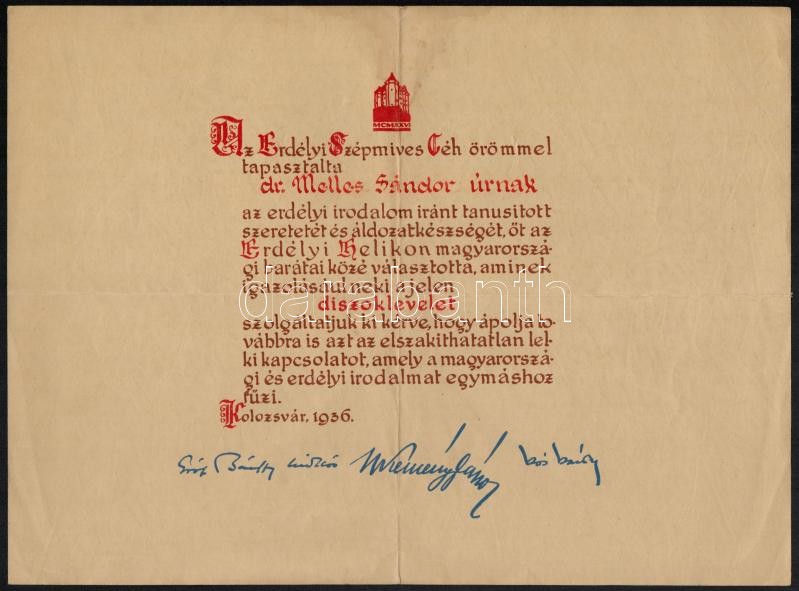 MCMXXVI
Az Erdélyi Szépmives Céh örömmel
tapasztalta
dr. Melles Sándor úrnak
az erdélyi irodalom iránt tanusitott
szeretetét és áldozatkészségét, őt az
Erdélyi Helikon magyarorszá-
gi barátai közé választotta, aminek
igazolásául neki a jelen
diszoklevelet
szolgáltatjuk ki kérve, hogy ápolja to-
vábbra is azt az elszakithatatlan lel-
ki kapcsolatot, amely a magyarorszá-
gi és erdélyi irodalmat egymáshoz
fűzi.
Kolozsvár, 1936.
Gróf Bánffy Miklós Kemény János Kós Károly
darabanth